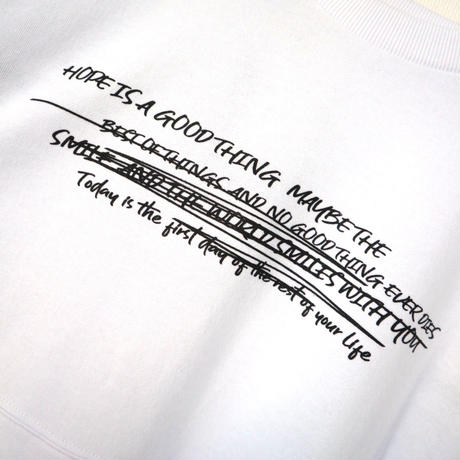 HOPE IS A GOOD THING MAYBE THE
BEST OF THINGS AND NO GOOD THING EVER DIES
SMILE AND THE WORLD SMILES WITH YOU
Today is the first day of the rest of your life